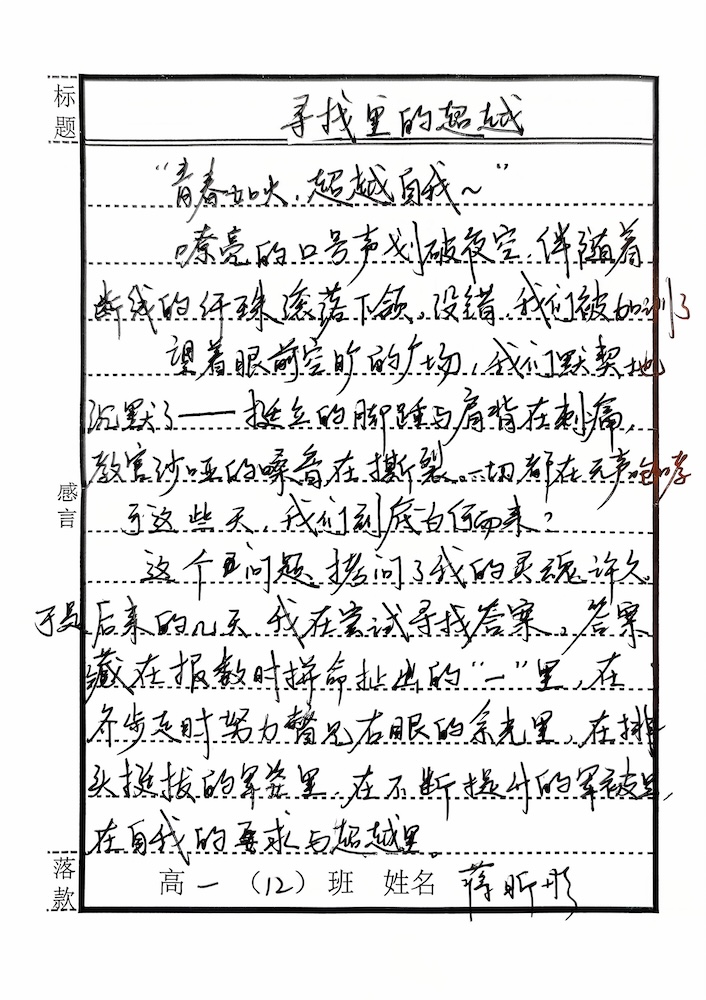 标题
寻找里的超越
“青春如火，超越自我～”
嘹亮的口号声划破夜空，伴随着
断线的汗珠滚落下颌。没错，我们被加训了
望着眼前空旷的广场，我们默契地
沉默了——挺立的脚踵与肩背在刺痛，
教官沙哑的嗓音在撕裂。一切都在无声咆哮
这些天，我们到底为何而来？
这个问题，拷问了我的灵魂许久。
于是后来的几天，我在尝试寻找答案。答案
藏在报数时拼命扯出的“一”里，在
齐步走时努力瞥见右眼的余光里，在排
头挺拔的军姿里，在不断提升的军被里，
在自我的要求与超越里。
感言
落款
高一（12）班 姓名 蒋昕彤